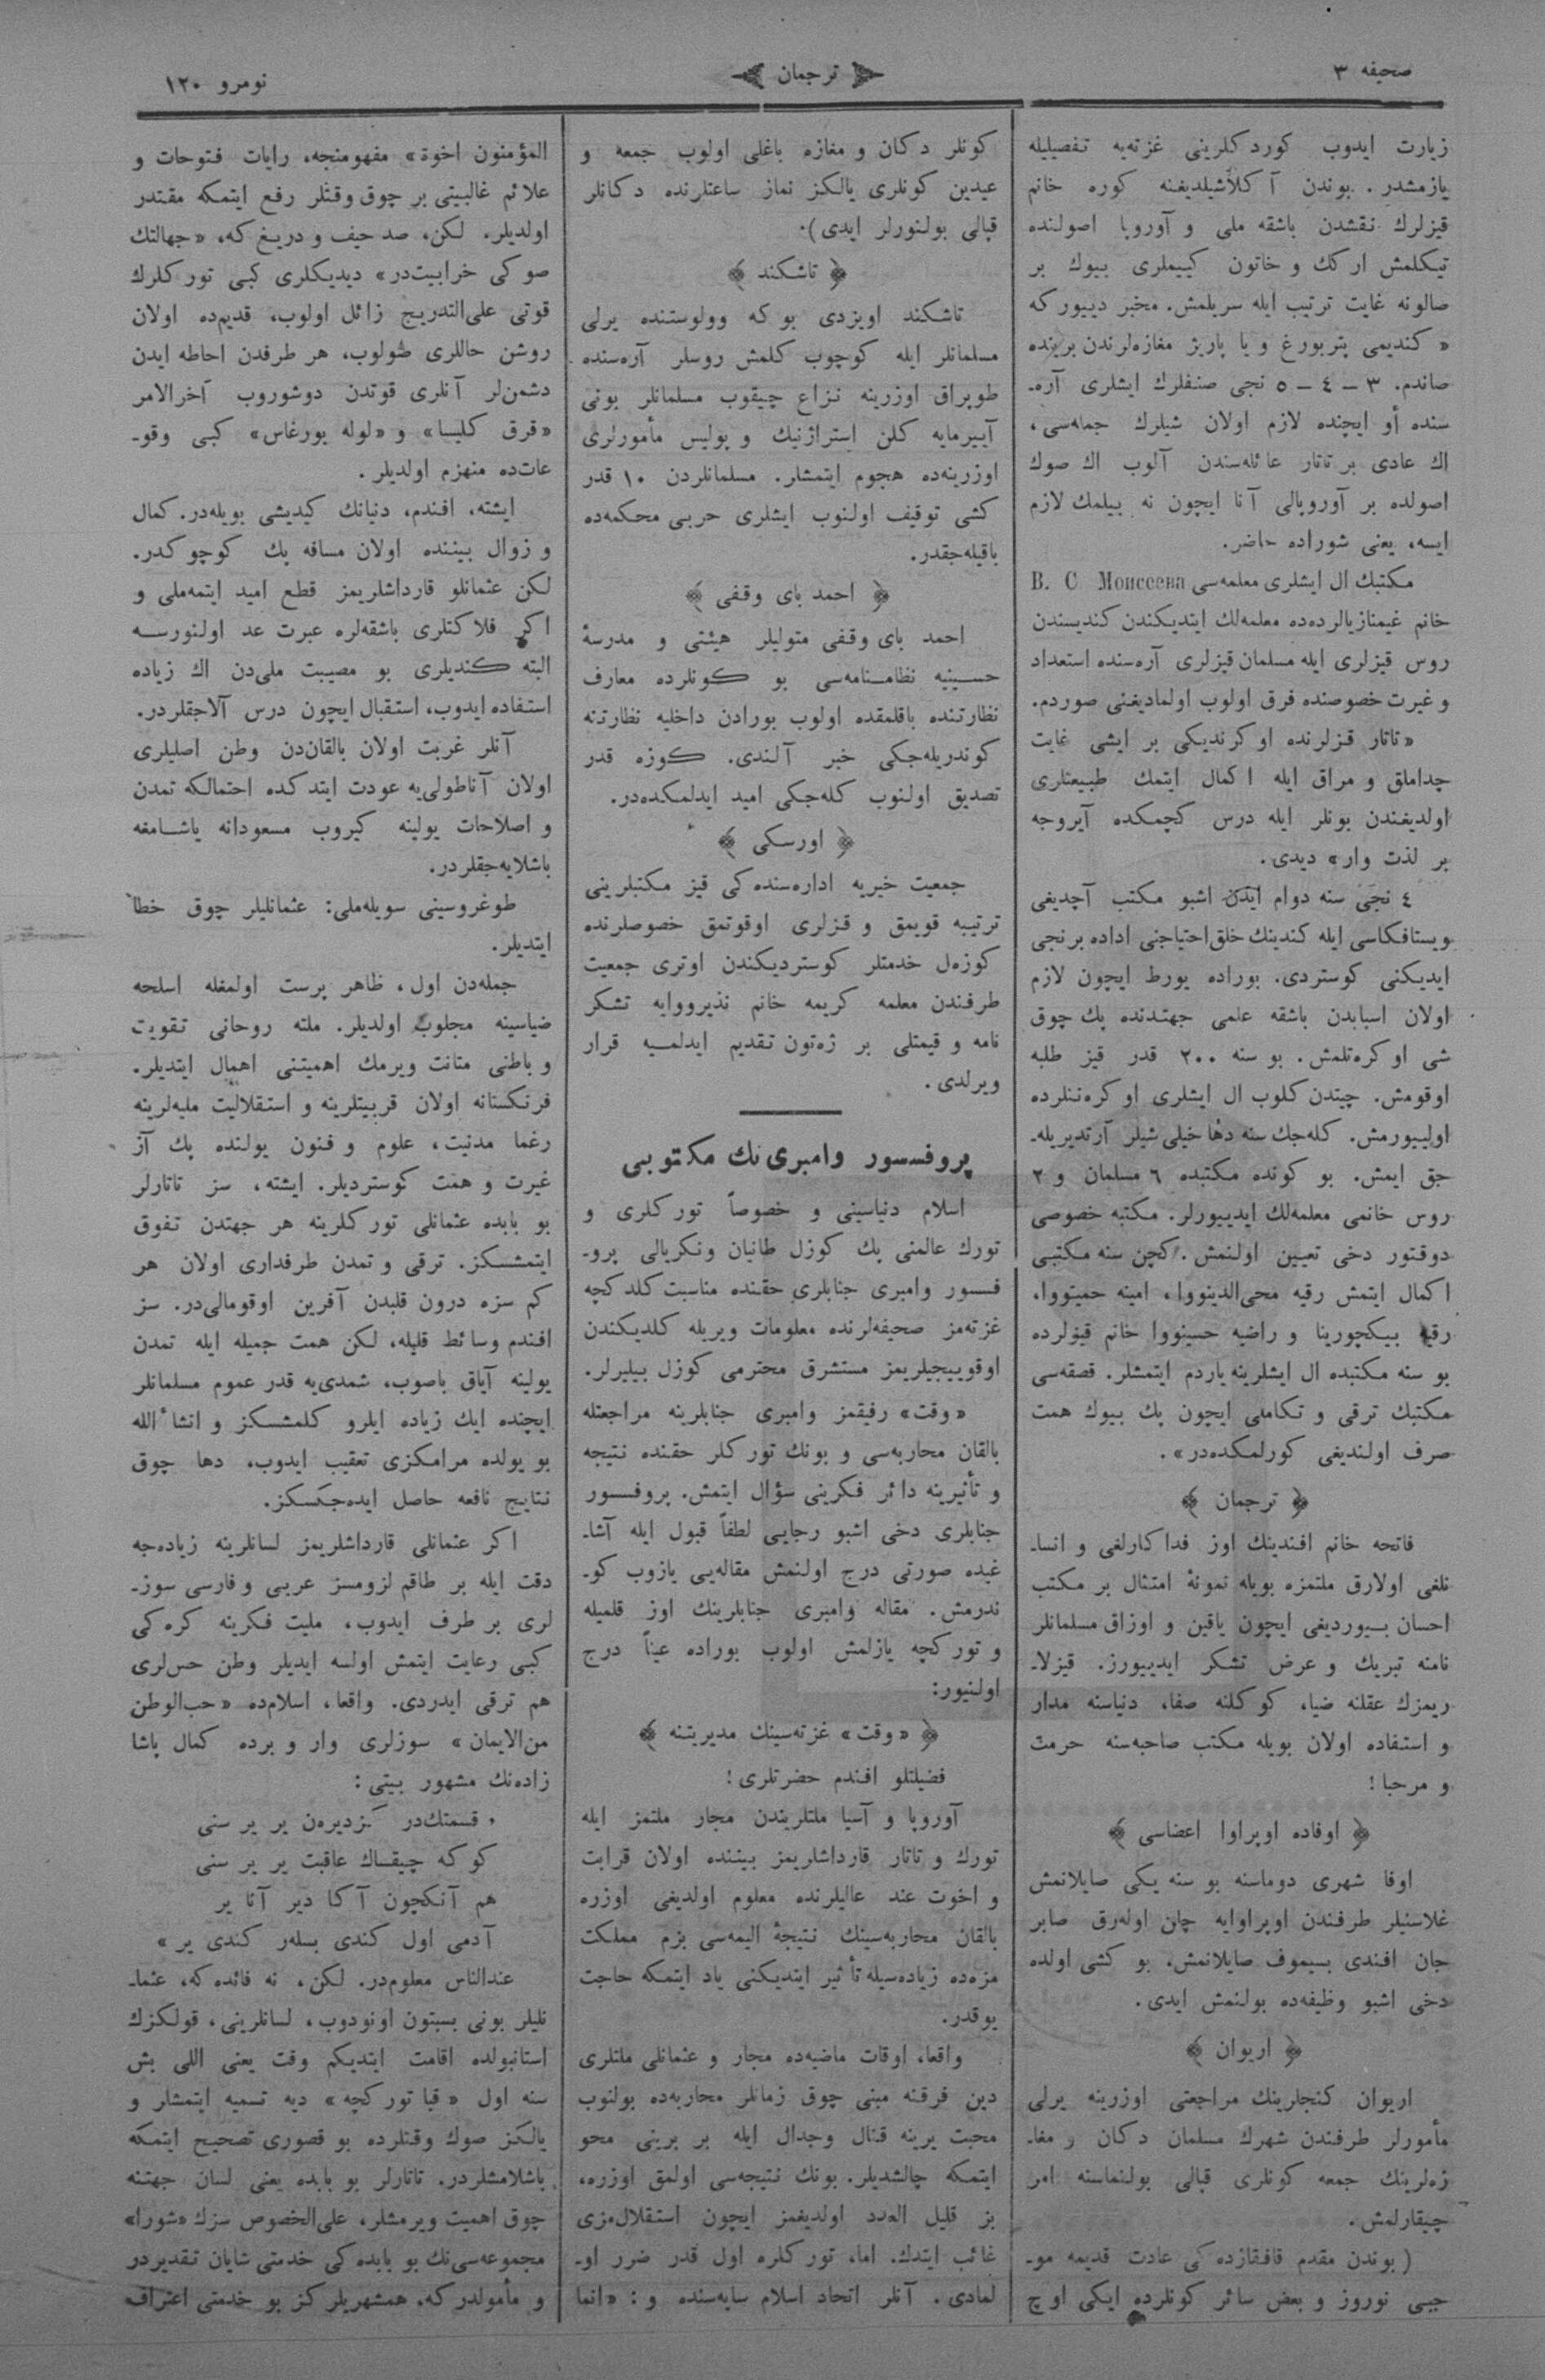 صحیفه ٣
ترجمان
نومرو ١٢٠
زیارت ایدوب کوردکلرینی غزته‌یه تفصیلیله
یازمشدر. بوندن آکلاشیلدیغنه کوره خانم
قیزلرك نقشدن باشقه ملی و آوروپا اصولنده
تیکلمش ارکك و خاتون کییملری بیوك بر
صالونه غایت ترتیب ایله سریلمش. مخبر دییورکه
«کندیمی پتربورغ ویا پاریژ مغازه‌لرندن برینده
صاندم. ٣ – ٤ – ٥ نجی صنفلرك ایشلری آره‌ـ
سنده أو ایچنده لازم اولان شیلرك جمله‌سی،
اك عادی بر تاتار عائله‌سندن آلوب اك صوك
اصولده بر آوروپالی آنا ایچون نه بیلمك لازم
ایسه، یعنی شوراده حاضر.
مکتبك ال ایشلری معلمه‌سی В. С. Моисеева
خانم غیمنازیالرده‌ده معلمه‌لك ایتدیکندن کندیسندن
روس قیزلری ایله مسلمان قیزلری آره‌سنده استعداد
و غیرت خصوصنده فرق اولوب اولمادیغنی صوردم.
«تاتار قزلرنده اوکرندیکی بر ایشی غایت
چداملق و مراق ایله اکمال ایتمك طبیعتلری
اولدیغندن بونلر ایله درس کچمکده آیروجه
بر لذت وار» دیدی.
٤ نجی سنه دوام ایدن اشبو مکتب آچدیغی
ویستافکاسی ایله کندینك خلق احتیاجنی اداده برنجی
ایدیکنی کوستردی. بوراده یورط ایچون لازم
اولان اسبابدن باشقه علمی جهتدنده پك چوق
شی اوکره‌تلمش. بو سنه ٢٠٠ قدر قیز طلبه
اوقومش. چیتدن کلوب ال ایشلری اوکره‌ننلرده
اولییورمش. کله‌جك سنه دها خیلی شیلر آرتدیریله‌ـ
جق ایمش. بو کونده مکتبده ٦ مسلمان و ٢
روس خانمی معلمه‌لك ایدییورلر. مکتبه خصوصی
دوقتور دخی تعیین اولنمش. کچن سنه مکتبی
اکمال ایتمش رقیه محی‌الدینووا، امینه حمیتووا،
رقیه بیکچورینا و راضیه حسینووا خانم قیزلرده
بو سنه مکتبده ال ایشلرینه یاردم ایتمشلر. قصقه‌سی
مکتبك ترقی و تکاملی ایچون پك بیوك همت
صرف اولندیغی کورلمکده‌در».
﴿ ترجمان ﴾
فاتحه خانم افندینك اوز فداکارلغی و انساـ
نلغی اولارق ملتمزه بویله نمونهٔ امتثال بر مکتب
احسان بـیوردیغی ایچون یاقین و اوزاق مسلمانلر
نامنه تبریك و عرض تشکر ایدییورز. قیزلاـ
ریمزك عقلنه ضیا، کوکلنه صفا، دنیاسنه مدار
و استفاده اولان بویله مکتب صاحبه‌سنه حرمت
و مرحبا!
﴿ اوفاده اوپراوا اعضاسی ﴾
اوفا شهری دوماسنه بو سنه یکی صایلانمش
غلاسنیلر طرفندن اوپراوایه چلن اوله‌رق صابر
جان افندی بسیموف صایلانمش، بو کشی اولده
دخی اشبو وظیفه‌ده بولنمش ایدی.
﴿ اریوان ﴾
اریوان کنجلرینك مراجعتی اوزرینه یرلی
مأمورلر طرفندن شهرك مسلمان دکان و مغاـ
زه‌لرینك جمعه کونلری قپالی بولنماسنه امر
چیقارلمش.
(بوندن مقدم قافقازده‌کی عادت قدیمه موـ
جبی نوروز و بعض سائر کونلرده ایکی اوچ
کونلر دکان و مغازه باغلی اولوب جمعه و
عیدین کونلری یالکز نماز ساعتلرنده دکانلر
قپالی بولنورلر ایدی).
﴿ تاشکند ﴾
تاشکند اویزدی بوکه وولوستنده یرلی
مسلمانلر ایله کوچوب کلمش روسلر آره‌سنده
طوپراق اوزرینه نزاع چیقوب مسلمانلر بونی
آییرمایه کلن استراژنیك و پولیس مأمورلری
اوزرینه‌ده هجوم ایتمشلر. مسلمانلردن ١٠ قدر
کشی توقیف اولنوب ایشلری حربی محکمه‌ده
باقیله‌جقدر.
﴿ احمد بای وقفی ﴾
احمد بای وقفی متولیلر هیئتی و مدرسهٔ
حسـینیه نظامـنامه‌سی بو کونلرده معارف
نظارتنده باقلمقده اولوب بورادن داخلیه نظارتنه
کوندریله‌جکی خبر آلندی. کوزه قدر
تصدیق اولنوب کله‌جکی امید ایدلمکده‌در.
﴿ اورسکی ﴾
جمعیت خیریه اداره‌سنده‌کی قیز مکتبلرینی
ترتیبه قویمق و قزلری اوقوتمق خصوصلرنده
کوزه‌ل خدمتلر کوستردیکندن اوتری جمعیت
طرفندن معلمه کریمه خانم نذیرووایه تشکر
نامه و قیمتلی بر ژه‌تون تقدیم ایدلمـیه قرار
ویرلدی.
پروفسسور وامبری‌نك مکتوبی
اسلام دنیاسینی و خصوصاً تورکلری و
تورك عالمنی پك کوزل طانیان ونکریالی پروـ
فسسور وامبری جنابلری حقنده مناسبت کلدکچه
غزته‌مز صحیفه‌لرنده معلومات ویریله کلدیکندن
اوقوییجیلریمز مستشرق محترمی کوزل بیلیرلر.
«وقت» رفیقمز وامبری جنابلرینه مراجعتله
بالقان محاربه‌سی و بونك تورکلر حقنده نتیجه
و تأثیرینه دائر فکرینی سؤال ایتمش. پروفسـور
جنابلری دخی اشبو رجایی لطفاً قبول ایله آشاـ
غیده صورتی درج اولنمش مقاله‌یی یازوب کوـ
ندرمش. مقاله وامبری جنابلرینك اوز قلمیله
و تورکچه یازلمش اولوب بوراده عیناً درج
اولنیور:
﴿ «وقت» غزته‌سینك مدیریتنه ﴾
فضیلتلو افندم حضرتلری!
آوروپا و آسیا ملتلریندن مجار ملتمز ایله
تورك و تاتار قارداشلریمز بیننده اولان قرابت
و اخوت عند عالیلرنده معلوم اولدیغی اوزره
بالقان محاربه‌سینك نتیجهٔ الیمه‌سی بزم مملکت
مزه‌ده زیاده‌سیله تأثیر ایتدیکنی یاد ایتمکه حاجت
یوقدر.
واقعا، اوقات ماضیه‌ده مجار و عثمانلی ملتلری
دین فرقنه مبنی چوق زمانلر محاربه‌ده بولنوب
محبت یرینه قتال وجدال ایله بر برینی محو
ایتمکه چالشدیلر. بونك نتیجه‌سی اولمق اوزره،
بز قلیل العدد اولدیغمز ایچون استقلال‌مزی
غائب ایتدك. اما، تورکلره اول قدر ضرر اوـ
لمادی. آنلر اتحاد اسلام سایه‌سنده و: «انما
المؤمنون اخوة» مفهومنجه، رایات فتوحات و
علائم غالبیتی بر چوق وقتلر رفع ایتمکه مقتدر
اولدیلر. لکن، صد حیف و دریغ که، «جهالتك
صوکی خرابیت‌در» دیدیکلری کبی تورکلرك
قوتی علی‌التدریج زائل اولوب، قدیم‌ده اولان
روشن حاللری صولوب، هر طرفدن احاطه ایدن
دشمن‌لر آنلری قوتدن دوشوروب آخرالامر
«قرق کلیسا» و «لوله بورغاس» کبی وقوـ
عات‌ده منهزم اولدیلر.
ایشته، افندم، دنیانك کیدیشی بویله‌در. کمال
و زوال بیننده اولان مسافه پك کوچوکدر.
لکن عثمانلو قارداشلریمز قطع امید ایتمه‌ملی و
اکر فلاکتلری باشقه‌لره عبرت عد اولنورسـه
البته کندیلری بو مصیبت ملی‌دن اك زیاده
استفاده ایدوب، استقبال ایچون درس آلاجقلردر.
آنلر غربت اولان بالقان‌دن وطن اصلیلری
اولان آناطولی‌یه عودت ایتدکده احتمالکه تمدن
و اصلاحات یولینه کیروب مسعودانه یاشـامغه
باشلایه‌جقلردر.
طوغروسینی سویله‌ملی: عثمانلیلر چوق خطا
ایتدیلر.
جمله‌دن اول، ظاهر پرست اولمغله اسلحه
ضیاسینه مجلوب اولدیلر. ملته روحانی تقویت
و باطنی متانت ویرمك اهمیتنی اهمال ایتدیلر.
فرنکستانه اولان قربیتلرینه و استقلالیت ملیه‌لرینه
رغما مدنیت، علوم و فنون یولنده پك آز
غیرت و همت کوستردیلر. ایشته، سز تاتارلر
بو بابده عثمانلی تورکلرینه هر جهتدن تفوق
ایتمشسکز. ترقی و تمدن طرفداری اولان هر
کم سزه درون قلبدن آفرین اوقومالی‌در. سز
افندم وسائط قلیله، لکن همت جمیله ایله تمدن
یولینه آیاق باصوب، شمدی‌یه قدر عموم مسلمانلر
ایچنده ایك زیاده ایلرو کلمشسکز و انشاءالله
بو یولده مرامکزی تعقیب ایدوب، دها چوق
نتایج نافعه حاصل ایده‌جکسکز.
اکر عثمانلی قارداشلریمز لسانلرینه زیاده‌جه
دقت ایله بر طاقم لزومسز عربی و فارسی سوزـ
لری بر طرف ایدوب، ملیت فکرینه کره‌کی
کبی رعایت ایتمش اولسه ایدیلر وطن حس‌لری
هم ترقی ایدردی. واقعا، اسلام‌ده «حب‌الوطن
من‌الایمان» سوزلری وار و برده کمال پاشا
زاده‌نك مشهور بیتی:
« قسمتك‌در کزدیره‌ن یر یر سنی
کوکه چیقساك عاقبت یر یر سنی
هم آنکچون آکا دیر آنا یر
آدمی اول کندی بسله‌ر کندی یر»
عندالناس معلوم‌در. لکن، نه فائده‌که، عثماـ
نلیلر بونی بسبتون اونودوب، لسانلرینی، قولکزك
استانبولده اقامت ایتدیکم وقت یعنی اللی بش
سنه اول «قبا تورکچه» دیه تسمیه ایتمشلر و
یالکز صوك وقتلرده بو قصوری تصحیح ایتمکه
باشلامشلردر. تاتارلر بو بابده یعنی لسان جهتنه
چوق اهمیت ویرمشلر، علی‌الخصوص سزك «شورا»
مجموعه‌سی‌نك بو بابده‌کی خدمتی شایان تقدیردر
و مأمولدرکه، همشهریلرکز بو خدمتی اعتراف